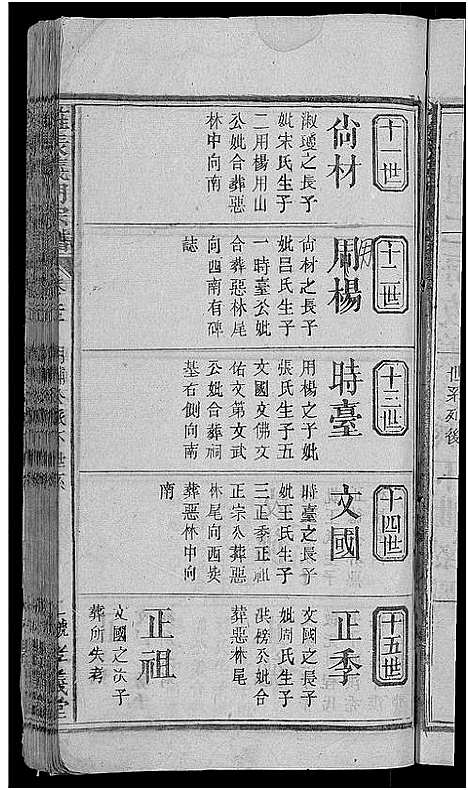 十一世
尙材
淑瑾之長子
妣宋氏生子
二用楊用山
公妣合葬惡
林中向南
十二世
周楊
用
尙材之長子
妣呂氏生子
一時臺公妣
合葬惡林尾
向西南有碑
誌
十三世
時臺
用楊之子妣
張氏生子五
文國文佛文
佑文第文武
公妣合葬祠
墓右側向南
十四世
文國
時臺之長子
妣王氏生子
三正季正祖
正宗公葬惡
林尾向西妣
葬惡林中向
南
十五世
正季
文國之長子
妣周氏生子
洪榜公妣合
葬惡林尾
正祖
文國之次子
葬所失考
孝義堂
世系列後